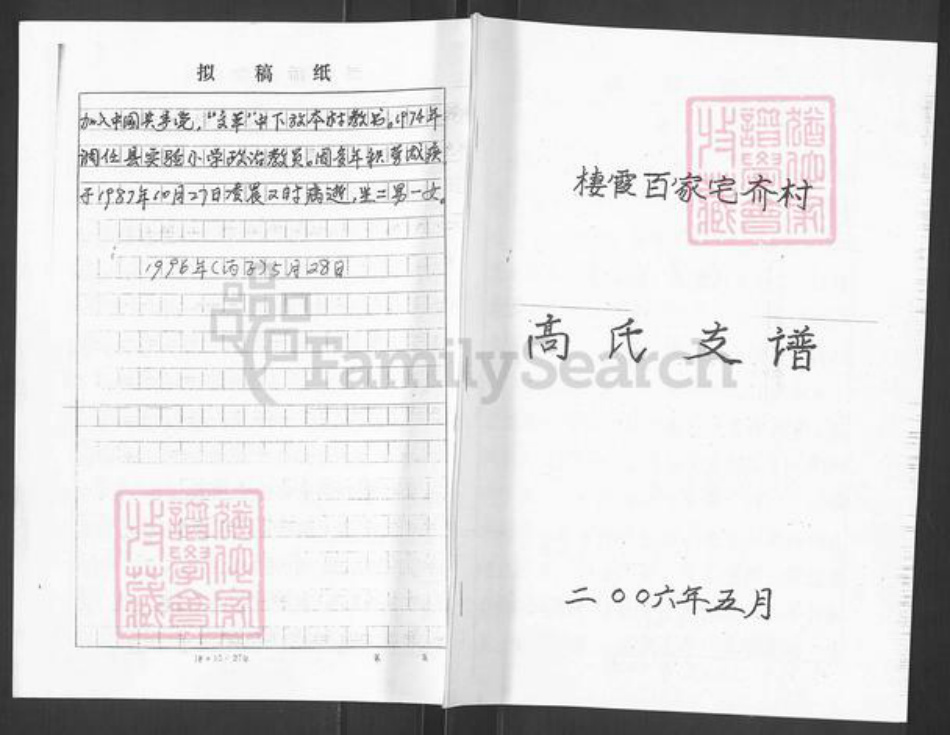 拟 稿 纸
加入中国共产党,"文革"中下放本村教书。1974年
调任县实验小学政治教员。因多年积劳成疾
于1987年10月27日凌晨2时病逝,生二男一女。
1996年(丙子)5月28日
栖霞百家宅齐村
高氏支谱
二〇〇六年五月
FamilySearch
譜學會
收藏